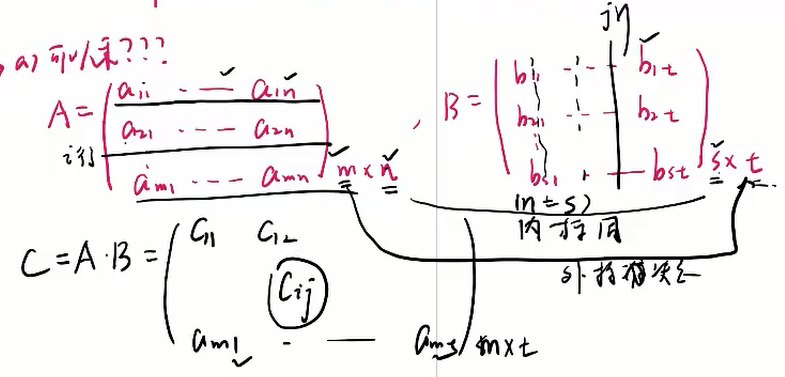 a) 可以乘???
A = ( a11 ·— a1n
a21 --- a2n
am1 --- amn ) m×n
i行
, B = ( b11 --- b1t
b21 --- b2t
bs1 · — bst ) s×t
j列
(n=s)
内标同
C=A·B= ( C11 C12
Cij
am1 - — ams ) m×t
外标